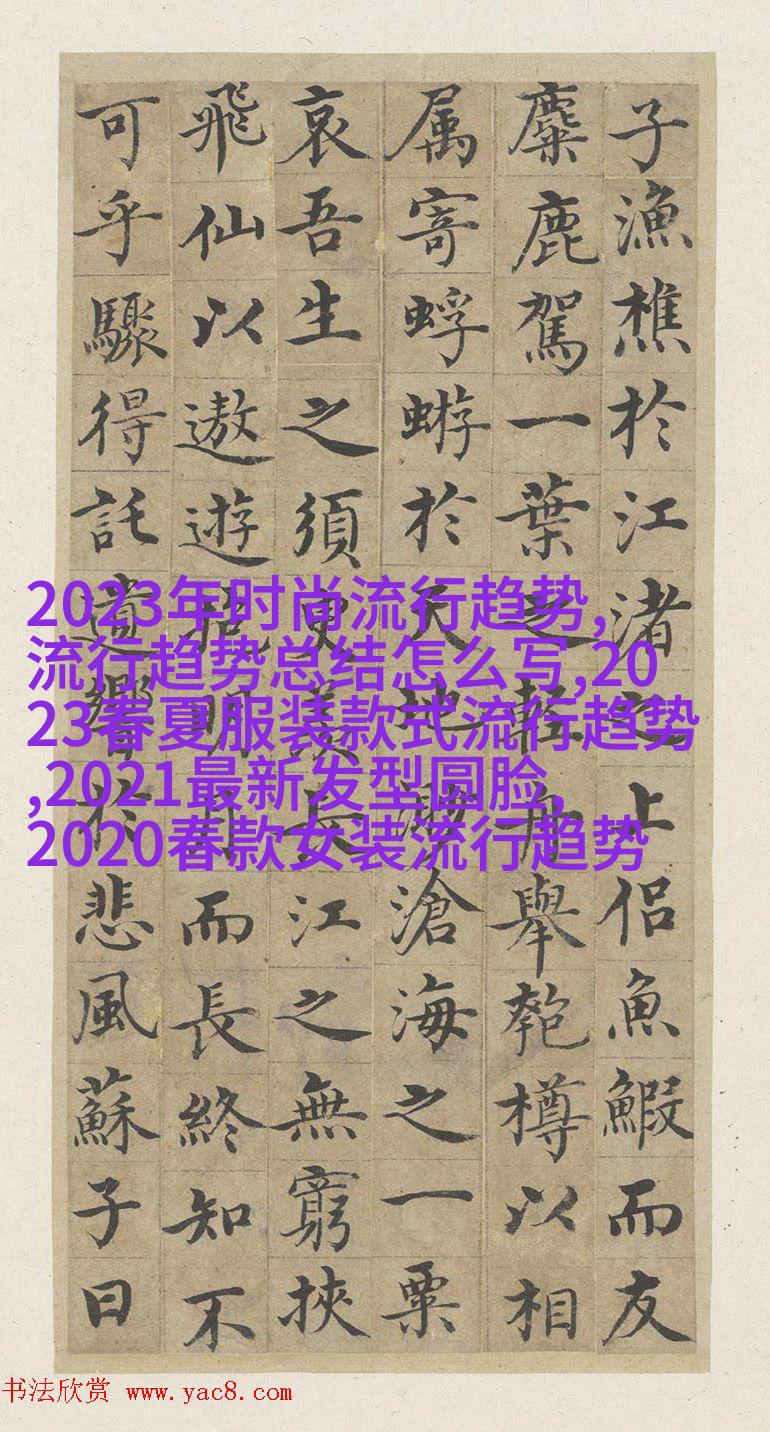 子漁樵於江渚之上侶魚鰕而友
麋鹿駕一葉之輕舟舉匏樽以相
属寄蜉蝣於天地渺滄海之一粟
哀吾生之須臾羨長江之無窮挾
飛仙以遨遊抱明月而長終知不
可乎驟得託遺響於悲風蘇子曰
2023年时尚流行趋势,
流行趋势总结怎么写,20
23春夏服装款式流行趋势
,2021最新发型圆脸,
2020春款女装流行趋势
书法欣赏 www.yac8.com